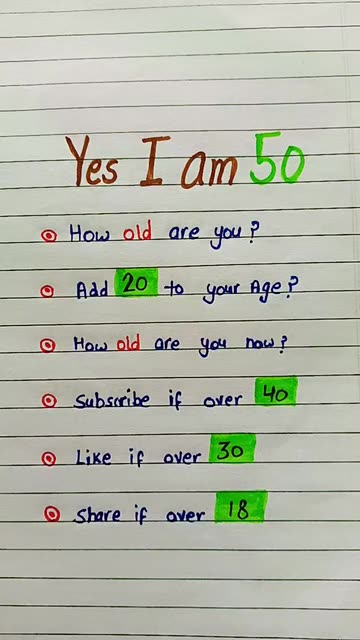 Yes I am 50
How old are you?
Add 20 to your Age?
How old are you now?
Subscribe if over 40
Like if over 30
Share if over 18